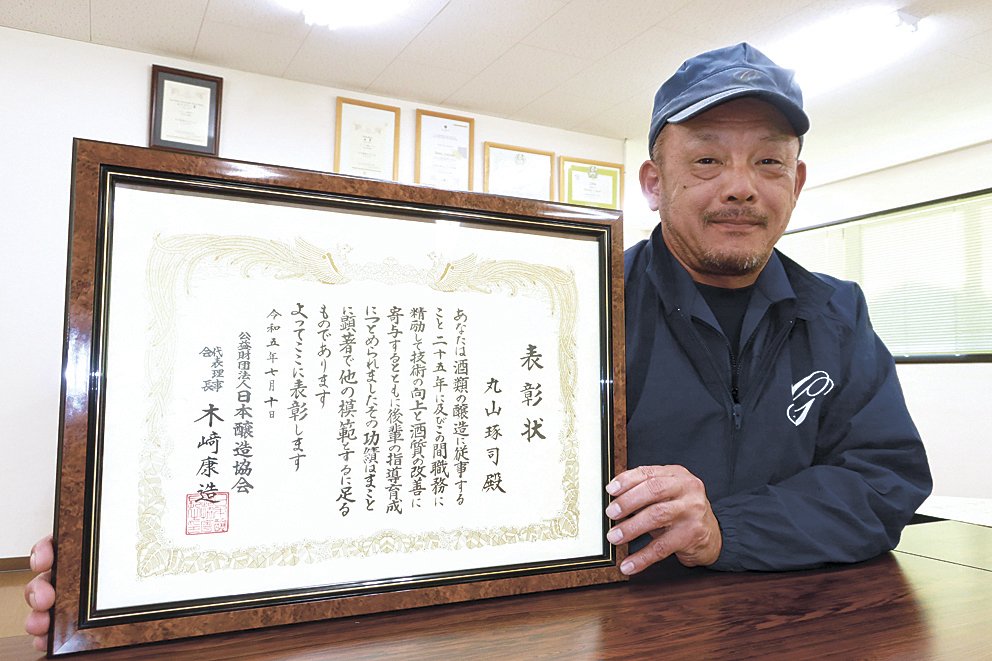 表彰状
丸山琢司殿
あなたは酒類の醸造に従事する
こと二十五年に及びこの間職務に
精励して技術の向上と酒質の改善に
寄与するとともに後輩の指導育成
につとめられましたその功績はまこと
に顕著で他の模範とするに足る
ものであります
よってここに表彰します
令和五年七月十日
公益財団法人日本醸造協会
代表理事
会長
木﨑康造